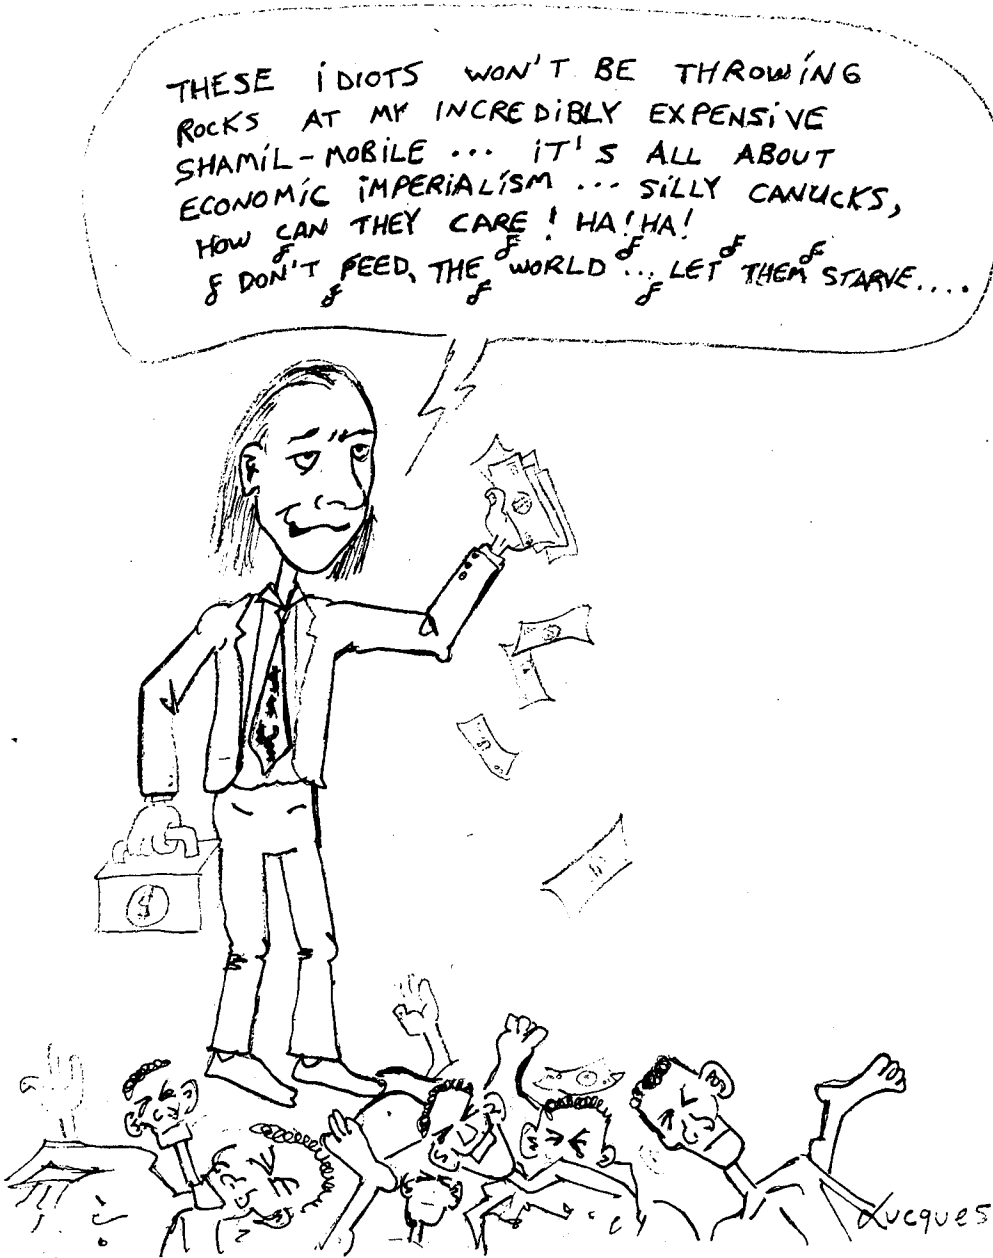 THESE IDIOTS WON'T BE THROWING
ROCKS AT MY INCREDIBLY EXPENSIVE
SHAMIL-MOBILE ... IT'S ALL ABOUT
ECONOMIC IMPERIALISM ... SILLY CANUCKS,
HOW CAN THEY CARE ! HA! HA!
DON'T FEED, THE WORLD ... LET THEM STARVE....
$
Lucques